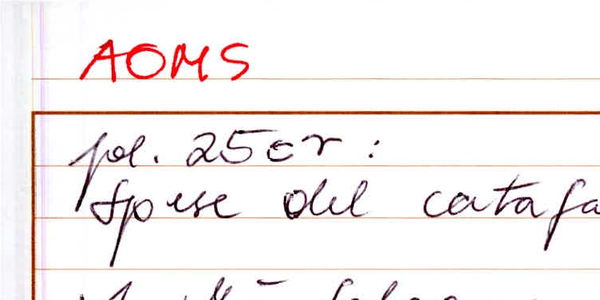 AOMS
fol. 25cr:
Spese del catafa